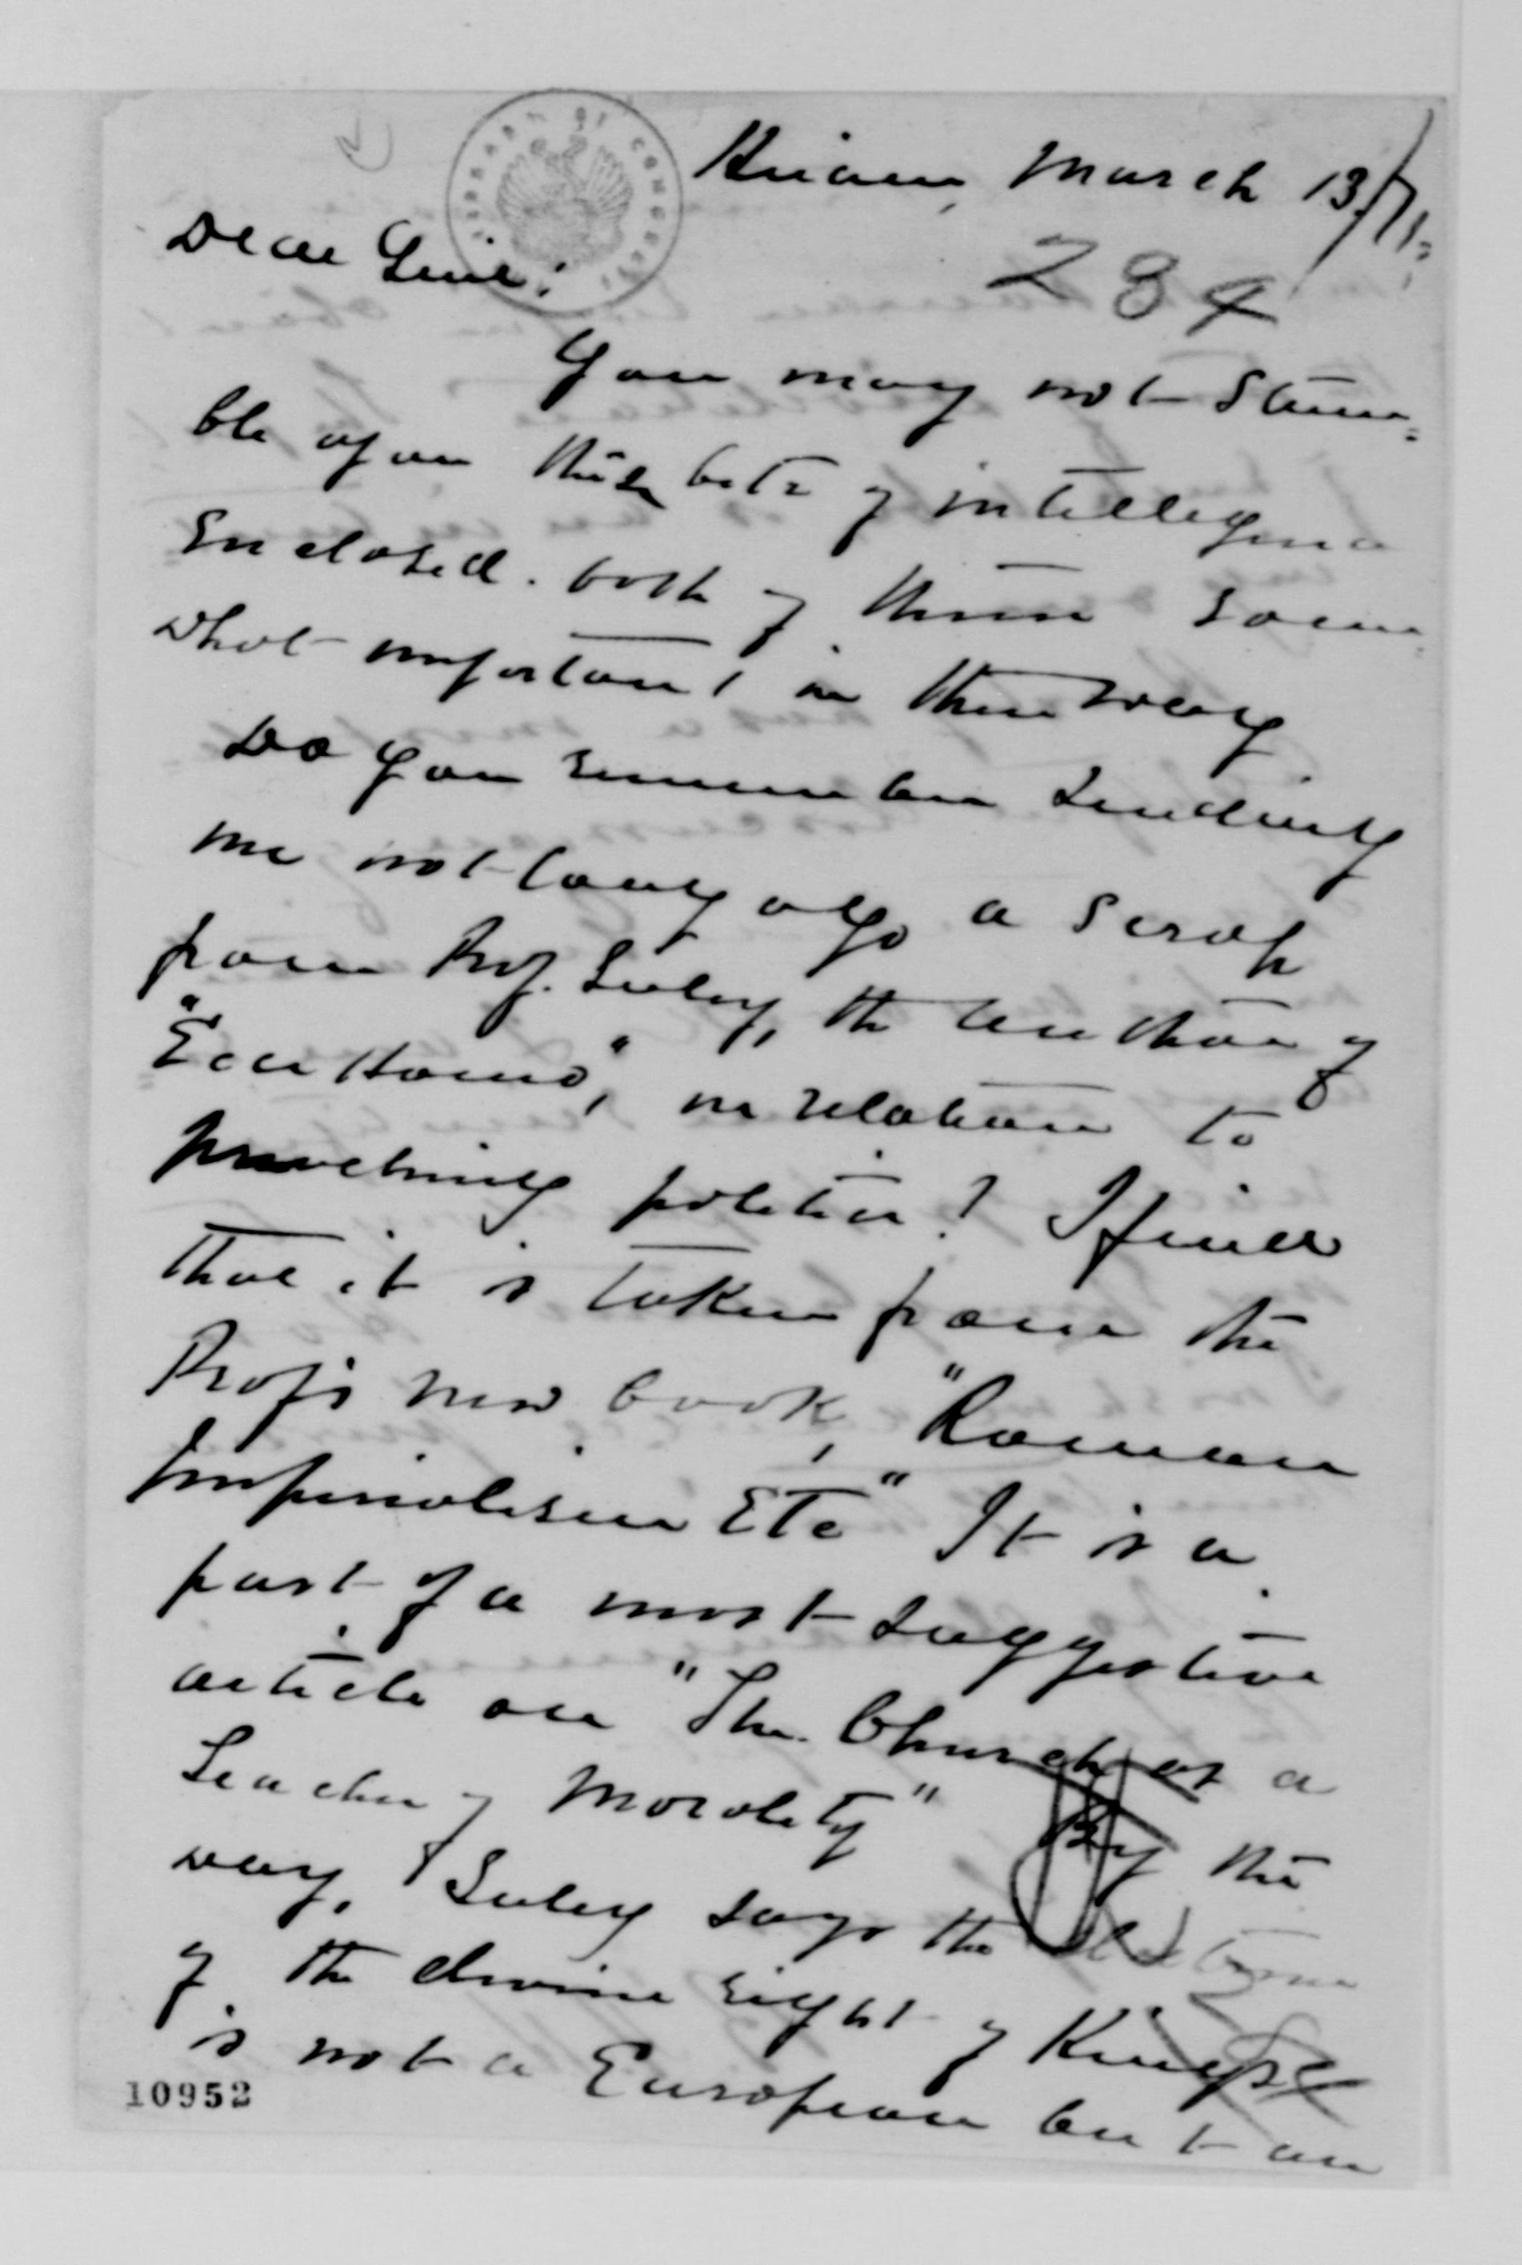 LIBRARY OF CONGRESS
Hiram, March 13/71.
284
Dear Genl:
You may not stum=
ble upon these bits of intelligence
enclosed. both of them some=
what important in their way
Do you remember sending
me not long ago a scrap
from Prof. Seeley, the author of
"Ecce Homo," in relation to
preaching politics? I find
that it is taken from the
Prof's new book, "Roman
Imperialism Etc" It is a
part of a most suggestive
article on "The Church as a
Teacher of Morality" By the
way, Seeley says the doctrine
of the divine right of Kings
is not a European but an
10952